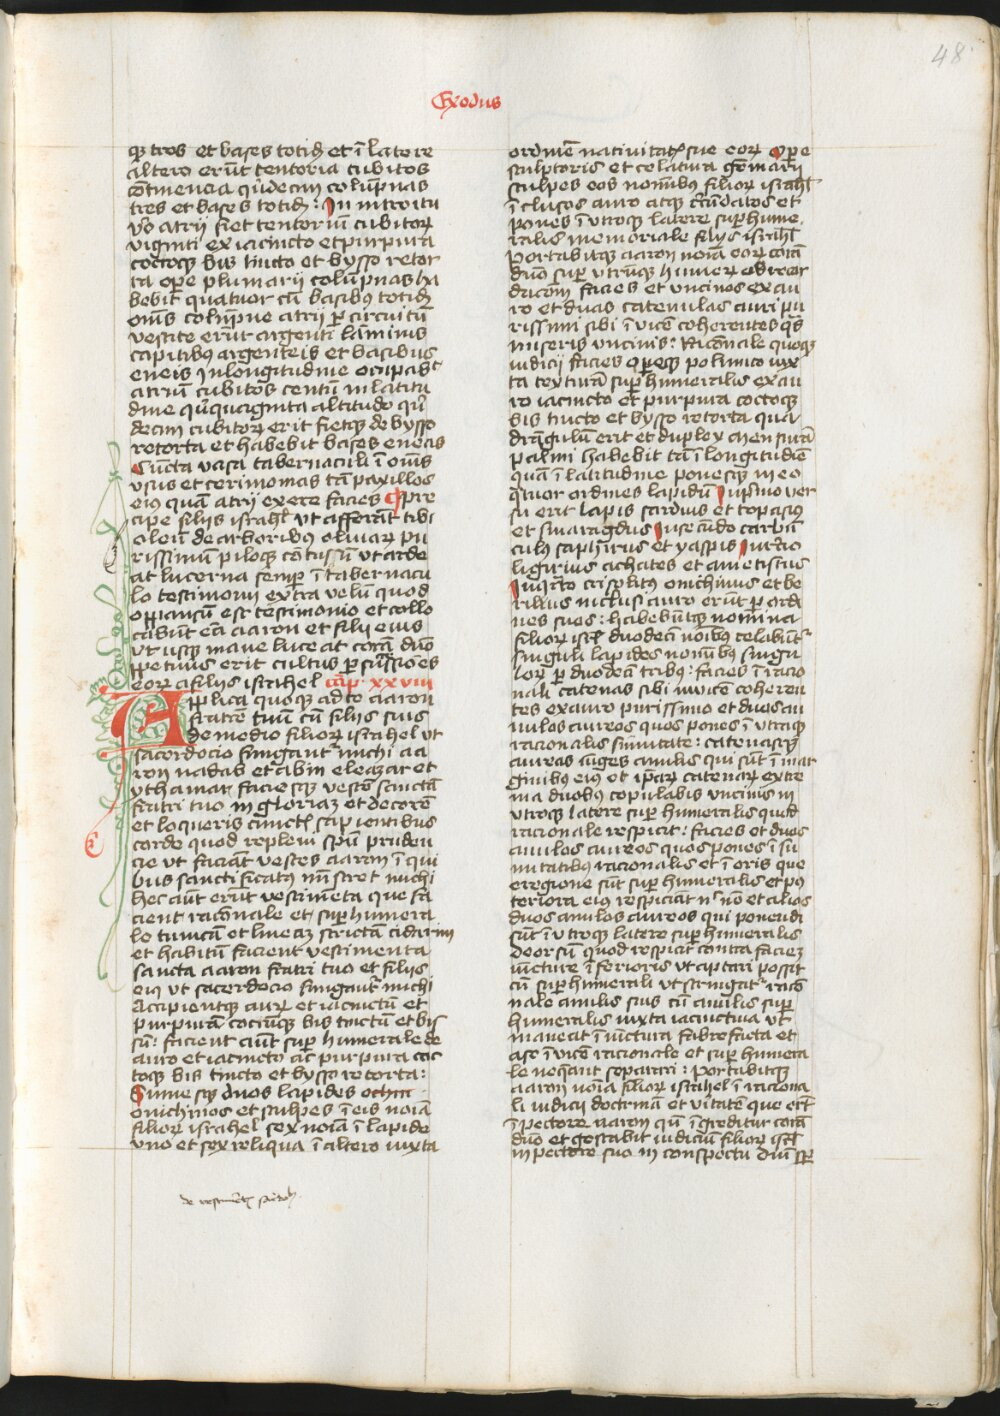 48
Exodus
qꝫ tres et bases totidē et ī latere
altero erūt tentoria cubitos
cōtinencia qͥndecim colūpnas
tres et bases totidē: In introitu
vͦo atrii fiet tentoriū cubitoꝝ
viginti ex iacincto et purpura
coctoqꝫ bis tincto et bysso retor
ta opere plumarii colūpnas ha
bebit quatuor cū basibꝰ totidē
oms colūpne atrii ꝑ circuitū
vestite erūt argenti laminis
capitibꝰ argenteis et basibus
eneis In longitudine occupabᵗ
atriū cubitos centū in latitu
dine qͥnquaginta altitudo qͥn
decim cubitoꝝ erit fietqꝫ de bysso
retorta et habebit bases eneas
Cuncta vasa tabernaculi ī oms
vsus et cerimonias tā paxillos
eiꝰ quā atrii ex ere facies Pre
cipe filiis israhel vt afferāt tibi
oleū de arboribus oliuaꝝ pu
rissimū piloqꝫ cōtusū vt arde
at lucerna semꝑ ī tabernacu
lo testimonii extra velū quod
oppansū est testimonio et collo
cabunt eā aaron et filii eius
vt usqꝫ mane luceat corā dūo
ꝑpetuus erit cultus ꝑ successiōes
eoꝝ a filiis israhel Caꝑ xxviii
Applica quoqꝫ ad te aaron
fratrē tuū cū filiis suis
de medio filioꝝ israhel vt
sacerdocio fungant᷑ michi aa
ron nadab et abiu eleazar et
ythamar faciesqꝫ vestē sanctā
fratri tuo in gloriaꝫ et decorē
et loqueris cunctis sapientibus
corde quos repleui spū pruden
cie vt faciāt vestes aaron ī qui
bus sanctificatꝰ ministret michi
hec aūt erūt vestimēta que fa
cient racōnale et suꝑhumera
le tunicā et lineaꝫ strictā cidarim
et habitū facient vestimenta
sancta aaron fratri tuo et filiis
eiꝰ vt sacerdocio fungant᷑ michi
Accipientqꝫ auꝝ et iacinctū et
purpurā coccūqꝫ bis tinctū et bis
sū: facient aūt suꝑhumerale de
auro et iacincto ac purpura coc
toqꝫ bis tincto et bysso retorta:
Sumesqꝫ duos lapides
onichinos et sculpes ī eis noīa
filioꝝ israhel sex noīa ī lapide
vno et sex reliqua ī altero iuxta
ordinē nativitatis sue eoꝝ Opere
sculptoris et celatura gēmarii
sculpes eos nominibꝰ filioꝝ israhl
ī clusos auro atqꝫ circūdatos et
pones ī vtroqꝫ latere suꝑhume
ralis memoriale filiis israhl
Portabitqꝫ aaron noīa eoꝝ corā
dūo suꝑ vtrūqꝫ humeꝝ ob recor
dacōem facies et uncinos ex au
ro et duas catenulas auri pu
rissimi sibi ī vicē coherentes qͣs
inseris uncinis: Racōnale quoqꝫ
iudicii facies opeqꝫ polimito iux
ta texturā suꝑhumeralis ex au
ro iacincto et purpura coctoqꝫ
bis tincto et bysso retorta qua
drāgulū erit et duplex mensurā
palmi habebit tā ī longitudīe
quā ī latitudine ponesqꝫ in eo
qͣtuor ordines lapidū In pͥmo ver
su erit lapis sardius et topasius
et smaragdus In secūdo carbū
culꝰ saphirus et yaspis In tͥcio
ligirius achates et ametistus
In qͣrto crisolitꝰ onichinus et be
rillus inclusi auro erūt ꝑ ordi
nes suos: habebūtqꝫ nomina
filioꝝ isrl duodecī noībꝰ celabūtᵗ
singuli lapides nominibꝰ singu
loꝝ ꝑ duodecī tribꝰ: facies ī racio
nali catenas sibi invicē coheren
tes ex auro purissimo et duos an
nulos aureos quos pones ī vtraqꝫ
racionalis sūmitate: catenasqꝫ
aureas iunges anulis qui sūt ī mar
ginibꝰ eiꝰ et ipaꝝ catenaꝝ extre
ma duobꝰ copulabis uncinis in
vtroqꝫ latere suꝑhumeralis quod
racionale respicit: facies et duos
anulos aureos quos pones ī sū
mitatibꝰ racionalis et ī oris que
e regione sūt suꝑhumeralis et pos
teriora eiꝰ respiciāt nͨ nō et alios
duos anulos aureos qui ponendi
sūt ī vtroqꝫ latere suꝑhumeralis
deorsū quod respicit contra faciez
iūcture īferioris vt aptari possit
cū suꝑhumerali vt stringatᵗ racō
nale anulis suis cū anulis suꝑ
humeralis iuxta iacinctina vt
maneat ī iūctura fabrefacta et
a se ī vicē racionale et suꝑhumera
le neqeant separari: Portabitqꝫ
aaron noīa filioꝝ israhel ī raciona
li iudicii doctrinā et vͥtatē que erūt
ī pectore aaron qn̄ īgreditur corā
dūo et gestabit iudiciū filioꝝ isrl
in pectore suo in conspectu dūi sꝑ
de vestimentis